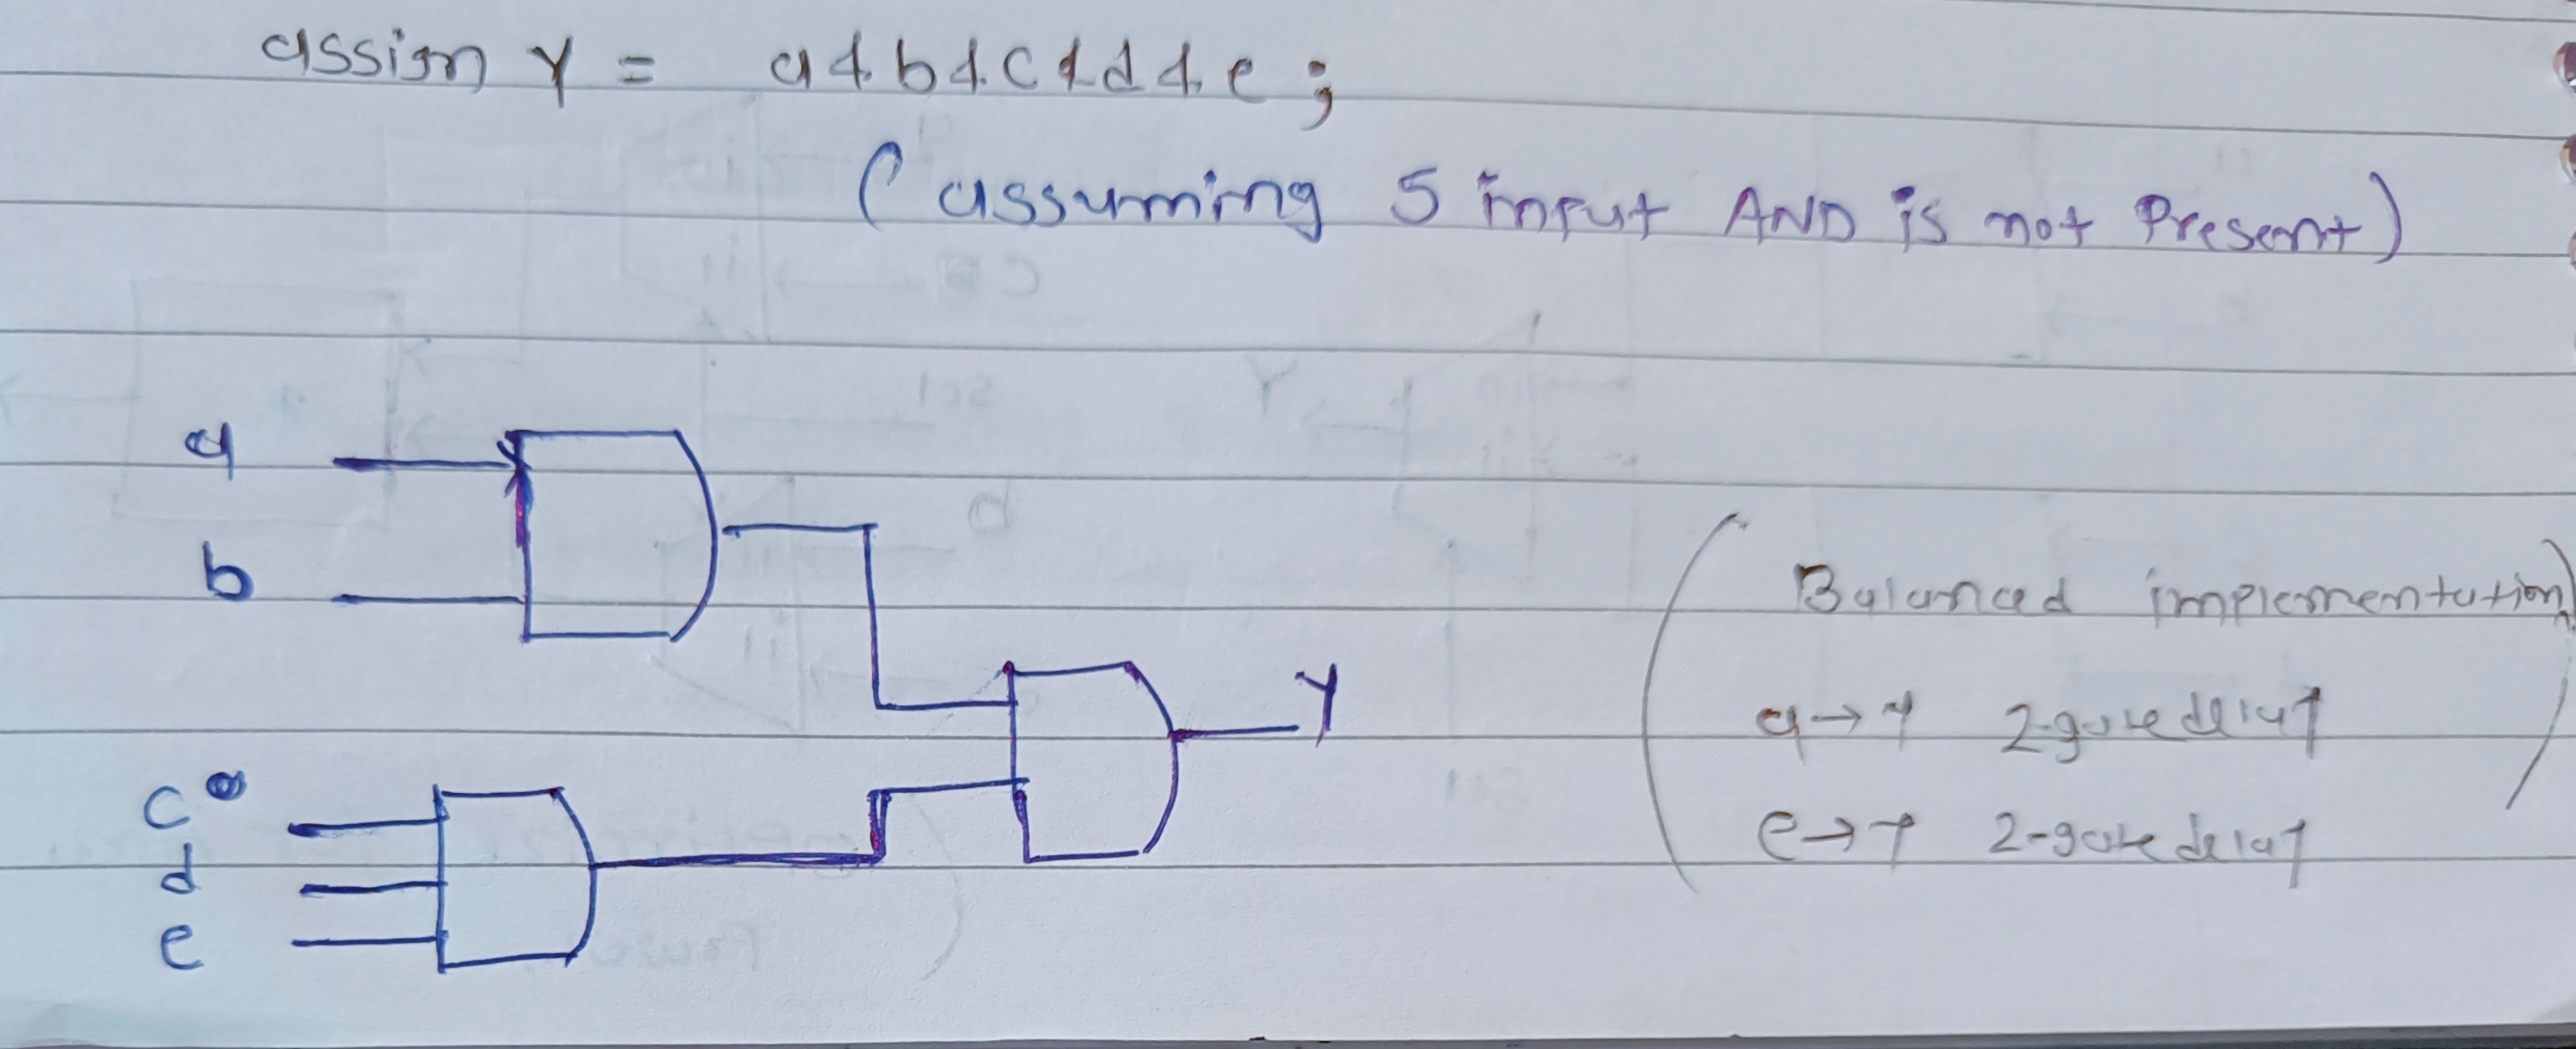 assign Y = a & b & c & d & e ;
(assuming 5 input AND is not Present)
a
b
Y
c
d
e
(Balanced implementation
a → Y 2-gate delay
e → Y 2-gate delay)